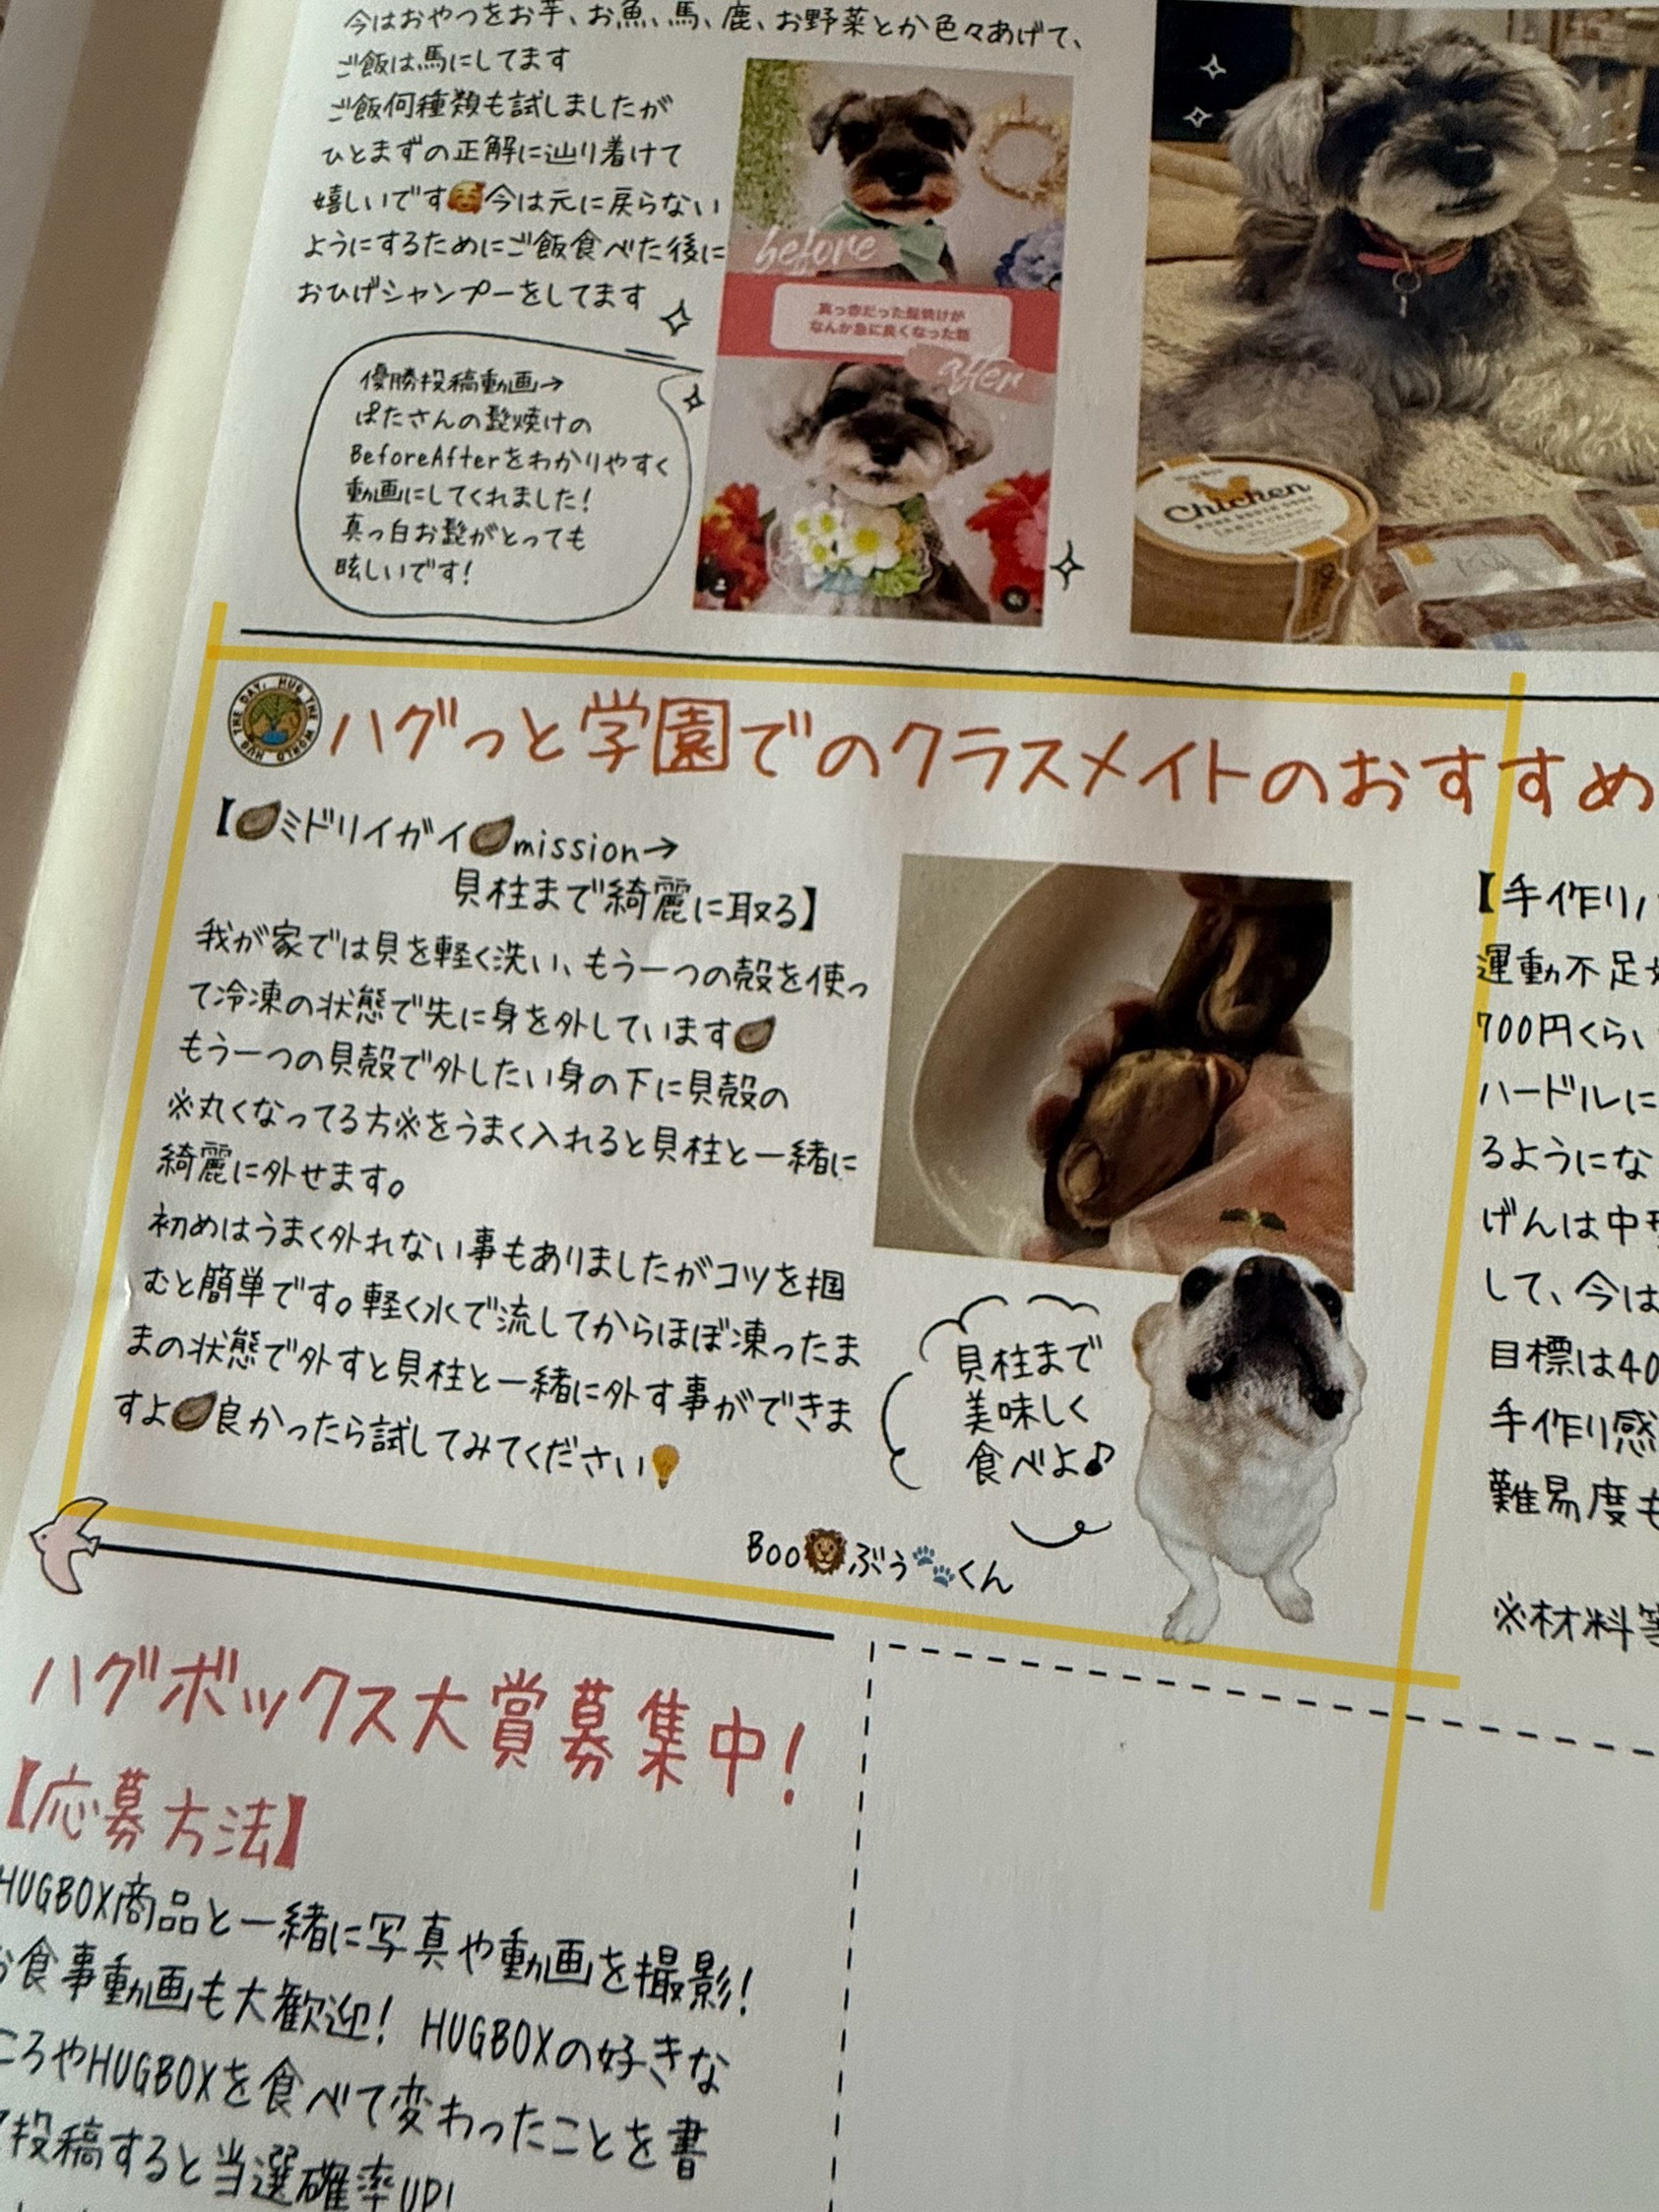 今はおやつをお芋、お魚、馬、鹿、お野菜とか色々あげて、
ご飯は馬にしてます
ご飯何種類も試しましたが
ひとまずの正解に辿り着けて
嬉しいです🥰今は元に戻らない
ようにするためにご飯食べた後に
おひげシャンプーをしてます
優勝投稿動画→
ぱたさんの髭焼けの
BeforeAfterをわかりやすく
動画にしてくれました!
真っ白お髭がとっても
眩しいです!
before
真っ赤だった髭焼けが
なんか急に良くなった話
after
Chicken
HUG THE DAY, HUG THE WORLD
ハグっと学園でのクラスメイトのおすすめ
【🦪ミドリイガイ🦪mission→
貝柱まで綺麗に取る】
我が家では貝を軽く洗い、もう一つの殻を使っ
て冷凍の状態で先に身を外しています🦪
もう一つの貝殻で外したい身の下に貝殻の
※丸くなってる方※をうまく入れると貝柱と一緒に
綺麗に外せます。
初めはうまく外れない事もありましたがコツを掴
むと簡単です。軽く水で流してからほぼ凍ったま
まの状態で外すと貝柱と一緒に外す事ができま
すよ🦪良かったら試してみてください💡
貝柱まで
美味しく
食べよ♪
Boo🦁ぶぅ🐾くん
【手作り
運動不足
700円くらい
ハードルに
るようにな
げんは中型
して、今は
目標は40
手作り感
難易度も
※材料等
ハグボックス大賞募集中!
【応募方法】
HUGBOX商品と一緒に写真や動画を撮影!
お食事動画も大歓迎! HUGBOXの好きな
ころやHUGBOXを食べて変わったことを書
て投稿すると当選確率UP!